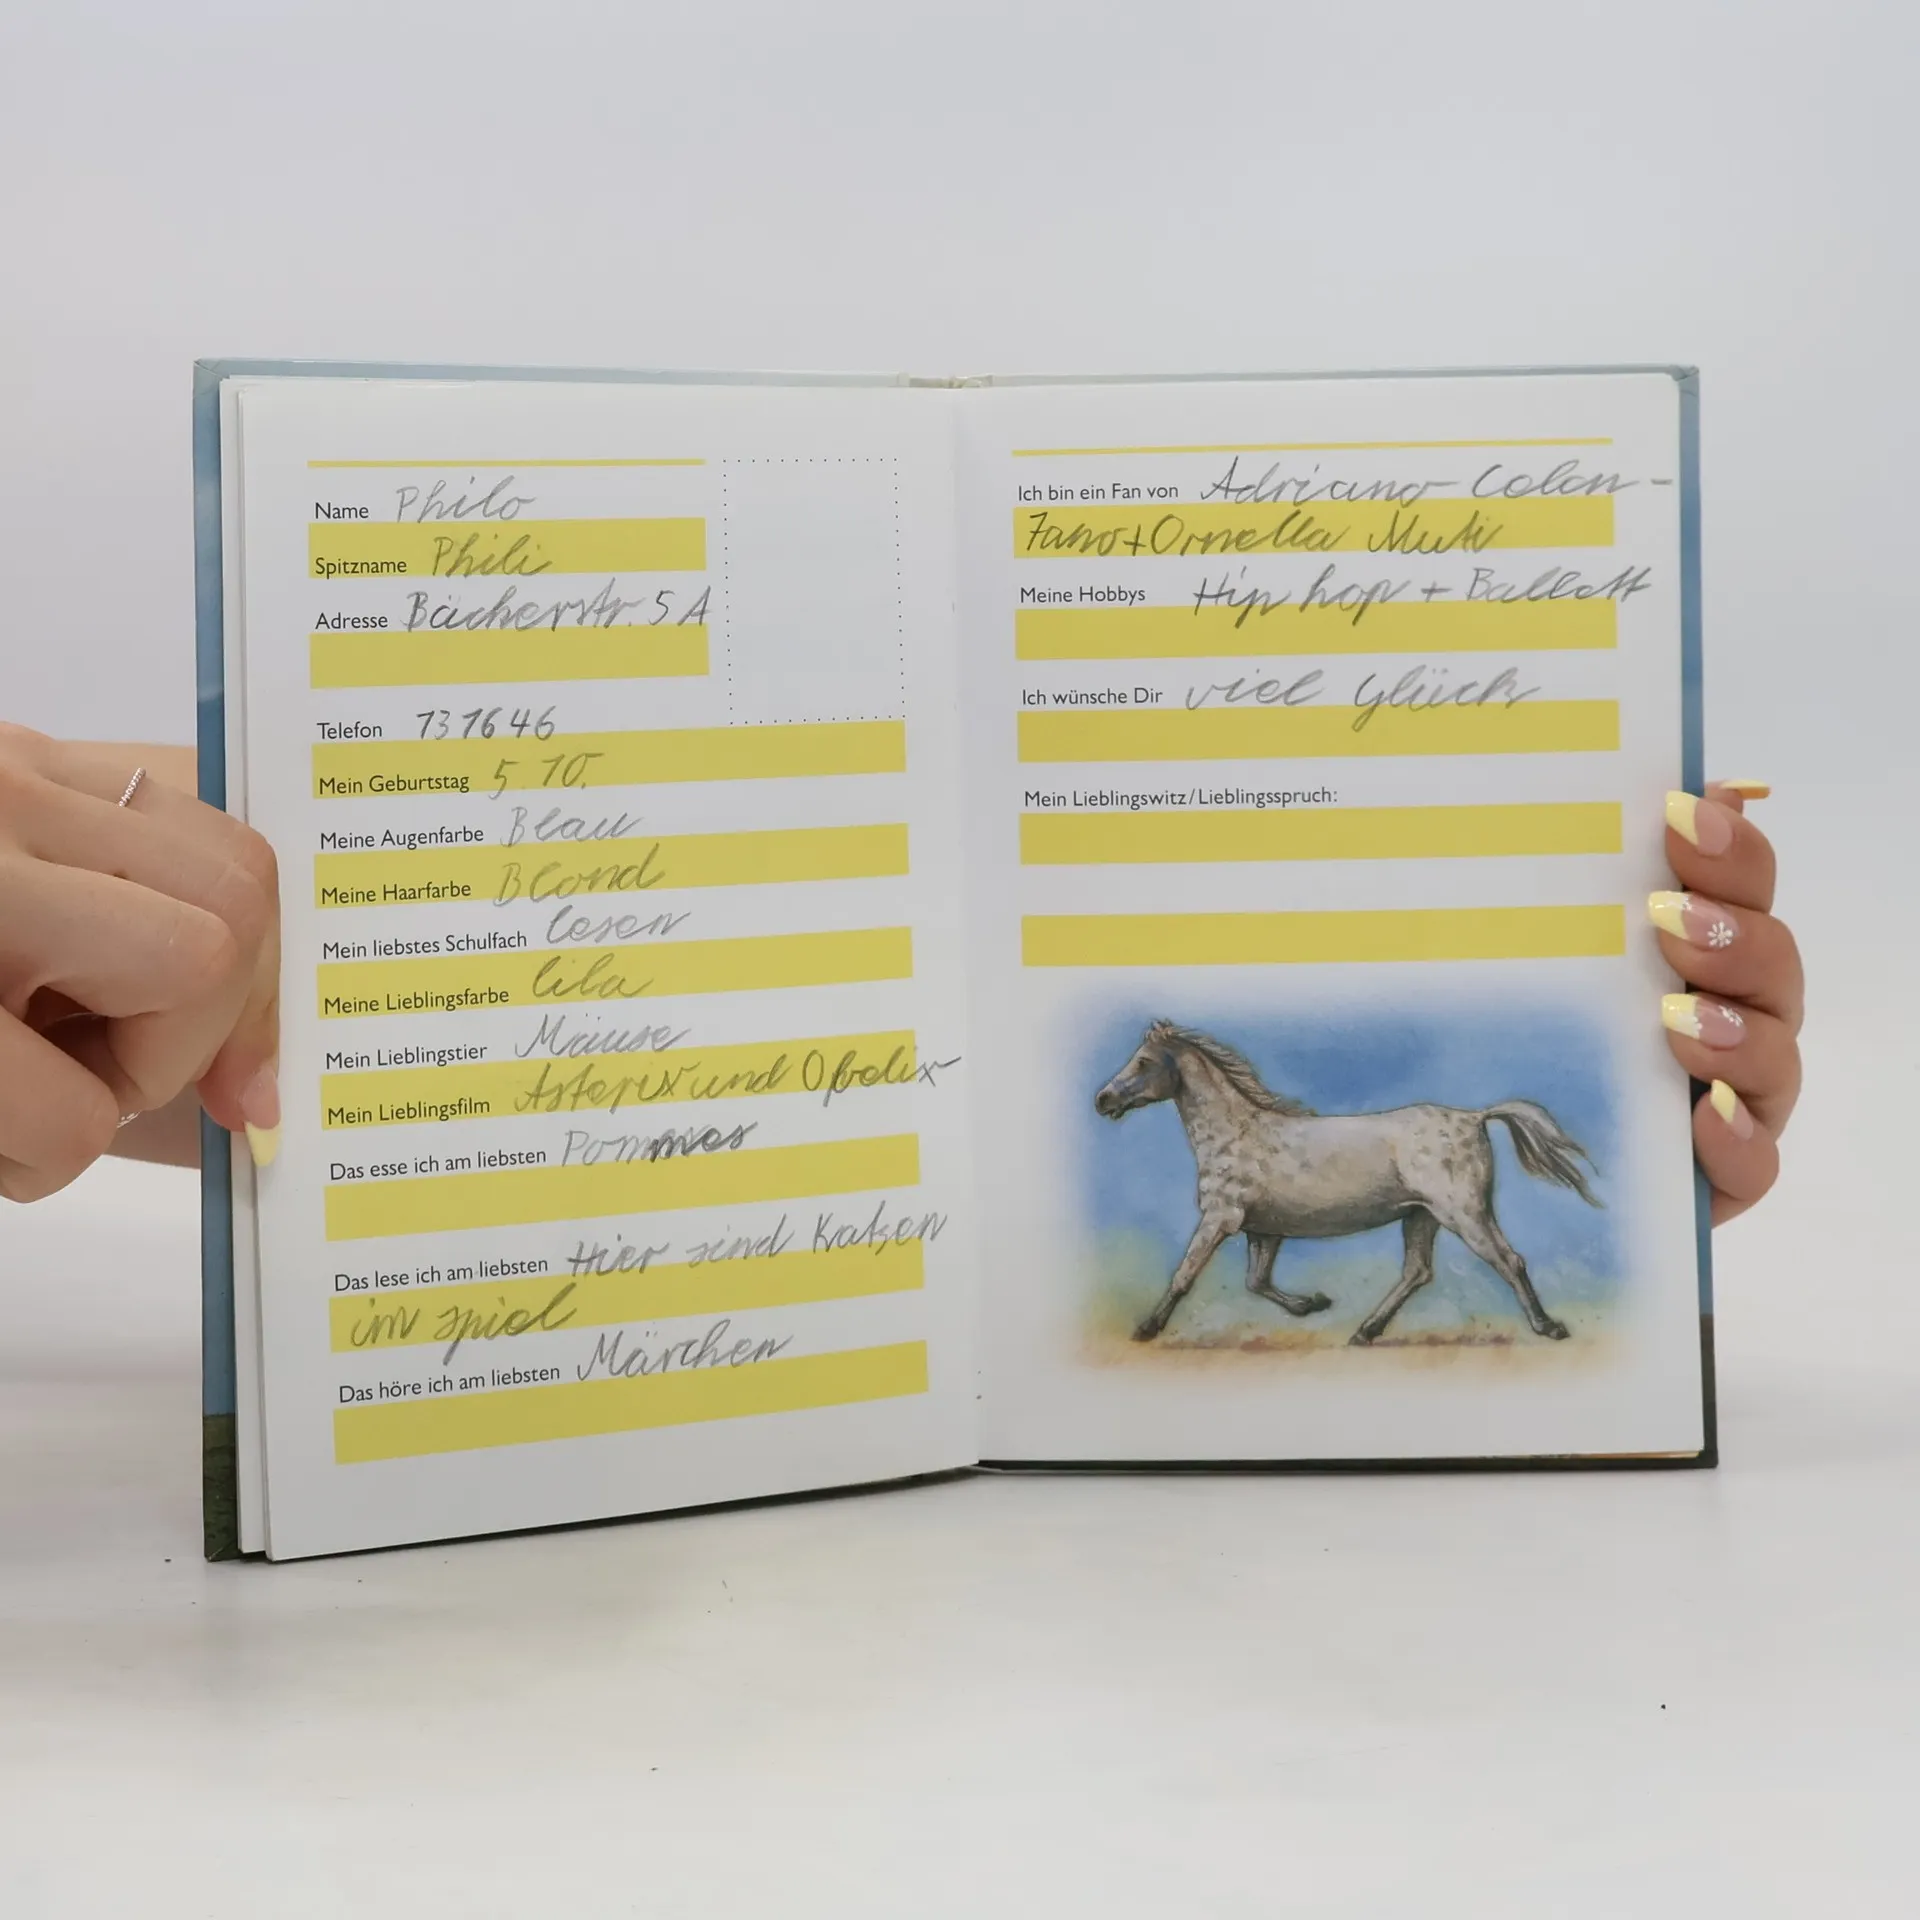 Name Philo
Spitzname Phili
Adresse Bächerstr. 5 A
Telefon 131646
Mein Geburtstag 5. 10.
Meine Augenfarbe Blau
Meine Haarfarbe Blond
Mein liebstes Schulfach lesen
Meine Lieblingsfarbe lila
Mein Lieblingstier Mäuse
Mein Lieblingsfilm Asterix und Obelix
Das esse ich am liebsten Pommes
Das lese ich am liebsten Hier sind Katzen
im spiel
Das höre ich am liebsten Märchen
Ich bin ein Fan von Adriano Celen-
Tano + Ornella Muti
Meine Hobbys Hip hop + Ballett
Ich wünsche Dir viel Glück
Mein Lieblingswitz/Lieblingsspruch: